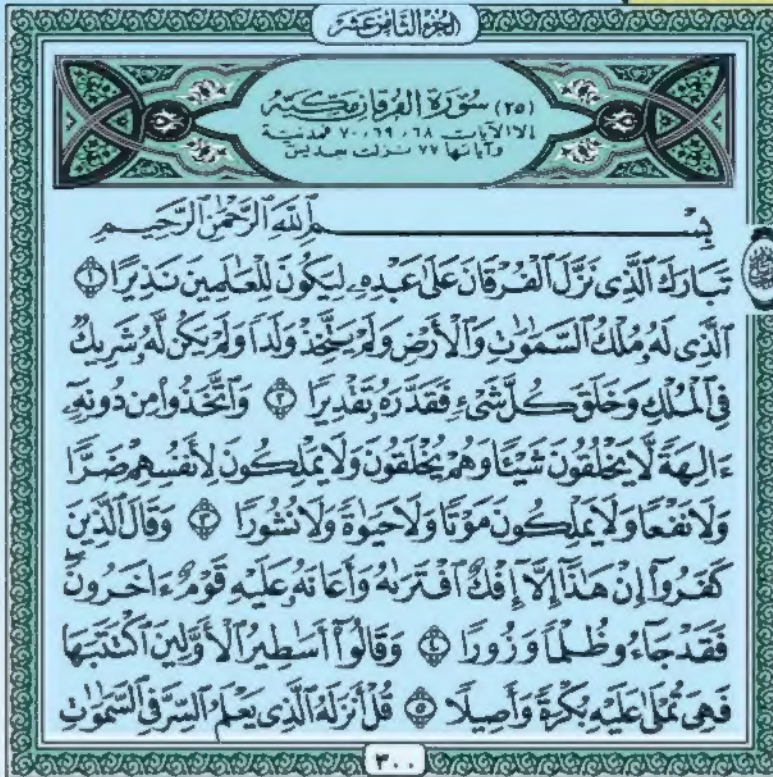 الجزء الثامن عشر
(٢٥) سُورَةُ الفُرْقَانِ مَكِّيَّة
إلا الآيات ٦٨، ٦٩، ٧٠ فمدنية
وآياتها ٧٧ نزلت بعد يس
بِسْمِ ٱللَّهِ ٱلرَّحْمَٰنِ ٱلرَّحِيمِ
تَبَارَكَ ٱلَّذِى نَزَّلَ ٱلْفُرْقَانَ عَلَىٰ عَبْدِهِۦ لِيَكُونَ لِلْعَٰلَمِينَ نَذِيرًا ١
ٱلَّذِى لَهُۥ مُلْكُ ٱلسَّمَٰوَٰتِ وَٱلْأَرْضِ وَلَمْ يَتَّخِذْ وَلَدًا وَلَمْ يَكُن لَّهُۥ شَرِيكٌ
فِى ٱلْمُلْكِ وَخَلَقَ كُلَّ شَىْءٍ فَقَدَّرَهُۥ تَقْدِيرًا ٢ وَٱتَّخَذُوا۟ مِن دُونِهِۦٓ
ءَالِهَةً لَّا يَخْلُقُونَ شَيْـًٔا وَهُمْ يُخْلَقُونَ وَلَا يَمْلِكُونَ لِأَنفُسِهِمْ ضَرًّا
وَلَا نَفْعًا وَلَا يَمْلِكُونَ مَوْتًا وَلَا حَيَوٰةً وَلَا نُشُورًا ٣ وَقَالَ ٱلَّذِينَ
كَفَرُوٓا۟ إِنْ هَٰذَآ إِلَّآ إِفْكٌ ٱفْتَرَىٰهُ وَأَعَانَهُۥ عَلَيْهِ قَوْمٌ ءَاخَرُونَ
فَقَدْ جَآءُو ظُلْمًا وَزُورًا ٤ وَقَالُوٓا۟ أَسَٰطِيرُ ٱلْأَوَّلِينَ ٱكْتَتَبَهَا
فَهِىَ تُمْلَىٰ عَلَيْهِ بُكْرَةً وَأَصِيلًا ٥ قُلْ أَنزَلَهُ ٱلَّذِى يَعْلَمُ ٱلسِّرَّ فِى ٱلسَّمَٰوَٰتِ
٣٠٠